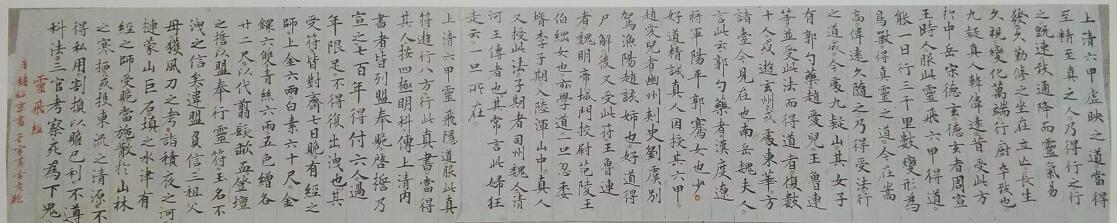 上清六甲虛映之道當得
至精至真之人乃得行之行
之既速致通降而靈氣易
發久勤修之坐在立亡長生
久視變化萬端行廚卒致也
九疑真人韓偉遠昔受此方
於中岳宋德玄德玄者周宣
王時人服此靈飛六甲得道
能一日行三千里數變形為
鳥獸得真靈之道今在嵩
高偉遠久隨之乃得受法行
之道成今處九疑山其女子
有郭勺藥趙愛兒王魯連
等並受此法而得道者復數
十人或遊玄州或處東華方
諸臺今見在也南岳魏夫人
言此云郭勺藥者漢度遼
將軍陽平郭騫女也少
好道精誠真人因授其六甲
趙愛兒者幽州刺史劉虞別
駕漁陽趙該姊也好道得
尸解後又受此符王魯連
者魏明帝城門校尉范陵王
伯綱女也亦學道一旦忽委
婿李子期入陸渾山中真人
又授此法子期者司州魏人清
河王傳者也其常言此婦狂
走云一旦所在
上清六甲靈飛隱道服此真
符遊行八方行此真書當得
其人按四極明科傳上清內
書者皆列盟奉贄啟誓乃
宣之七百年得付六人過
年限足不得復出洩也其
受符皆對齋七日贄有經之
師上金六兩白素六十尺金
鐶六雙青絲六兩五色繒各
廿二尺以代翦髮歃血登壇
之誓以盟奉行靈符玉名不
洩之信矣違盟負信三祖父
母獲風刀之考詰積夜之河
摙蒙山巨石填之水津有
經之師受贄當施散於山林
之寒栖或投東流之清源不
得私用割損以贍己利不遵
科法三官考察死為下鬼
靈飛經
鍾紹京書